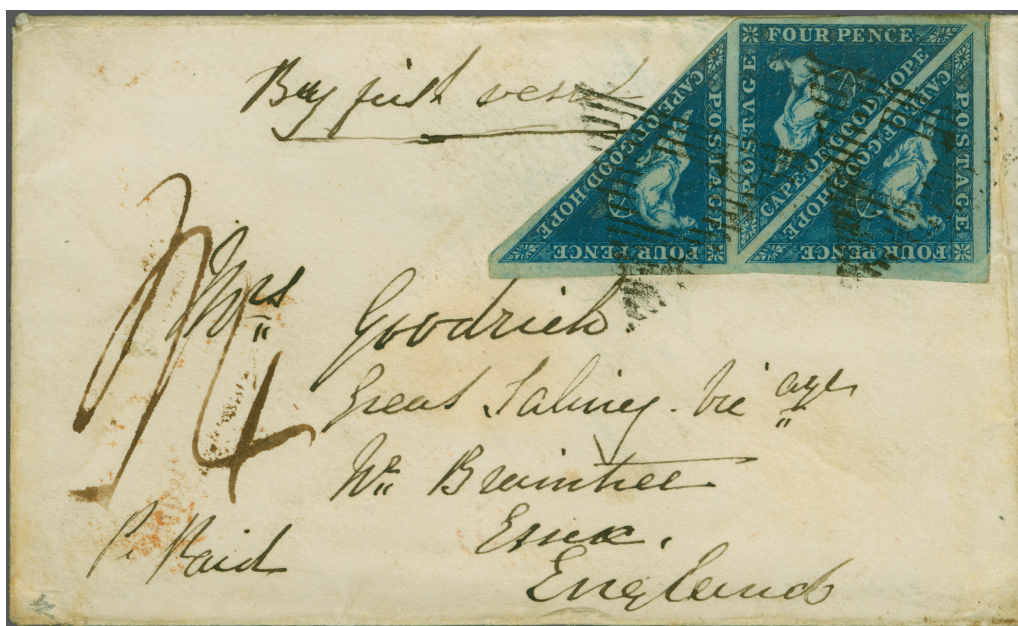 By first vessel
FOUR PENCE
POSTAGE
CAPE OF GOOD HOPE
POSTAGE
CAPE OF GOOD HOPE
FOUR PENCE
POSTAGE
CAPE OF GOOD HOPE
FOUR PENCE
Mrs Goodrich
Great Saling Vic age
Nr Braintree
Essex.
England
P. Paid